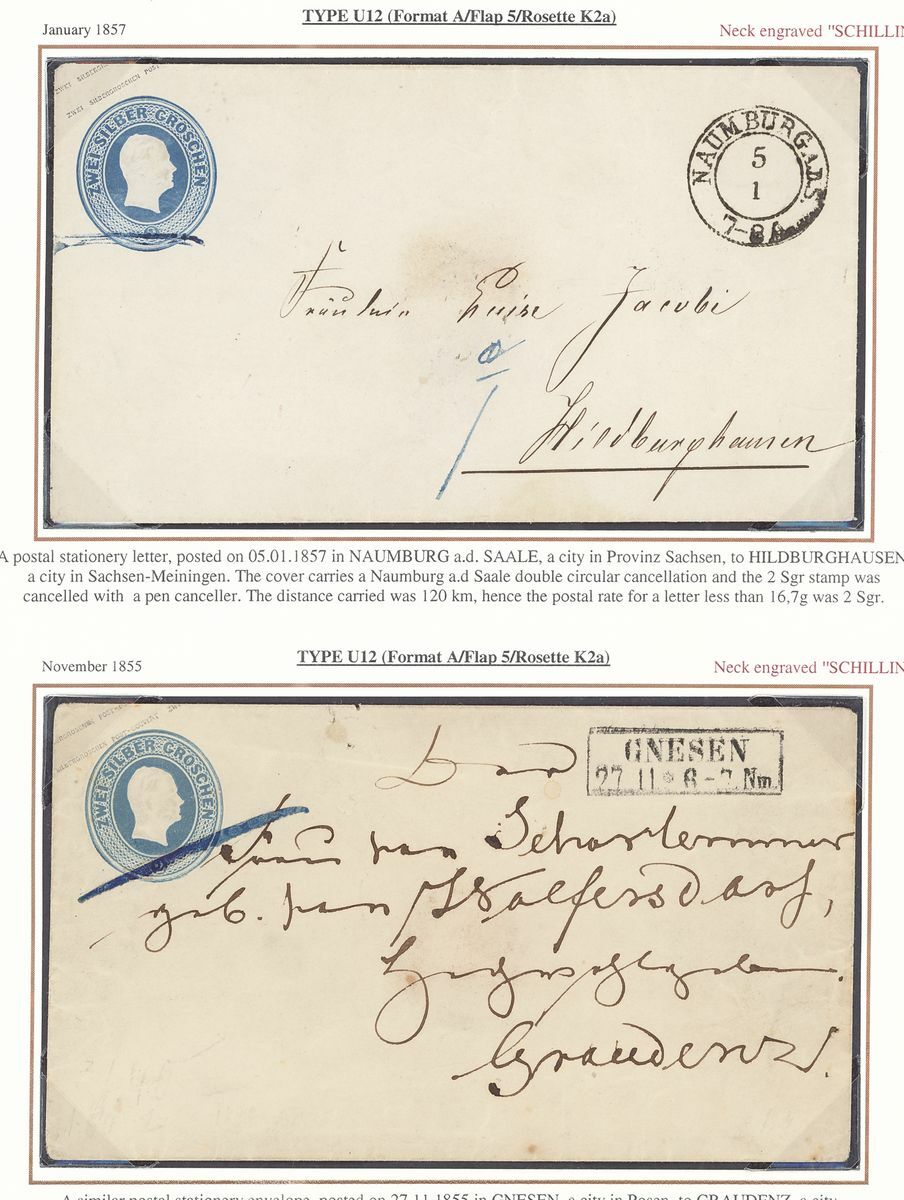 TYPE U12 (Format A/Flap 5/Rosette K2a)
January 1857
Neck engraved "SCHILLIN
ZWEI SILBERGROSCHEN POST
ZWEI SILBER GROSCHEN
2
NAUMBURG A.D.S.
5
1
7-8
Fräulein Luise Jacobi
Hildburghausen
A postal stationery letter, posted on 05.01.1857 in NAUMBURG a.d. SAALE, a city in Provinz Sachsen, to HILDBURGHAUSEN
a city in Sachsen-Meiningen. The cover carries a Naumburg a.d Saale double circular cancellation and the 2 Sgr stamp was
cancelled with a pen canceller. The distance carried was 120 km, hence the postal rate for a letter less than 16,7g was 2 Sgr.
TYPE U12 (Format A/Flap 5/Rosette K2a)
November 1855
Neck engraved "SCHILLIN
ZWEI SILBER GROSCHEN
GNESEN
27 11 * 6-7 Nm.
Frau von
geb. von Wolfersdorf,
Hochwohlgeboren.
Graudenz.
A similar postal stationery envelope, posted on 27.11.1855 in GNESEN, a city in Posen, to GRAUDENZ, a city